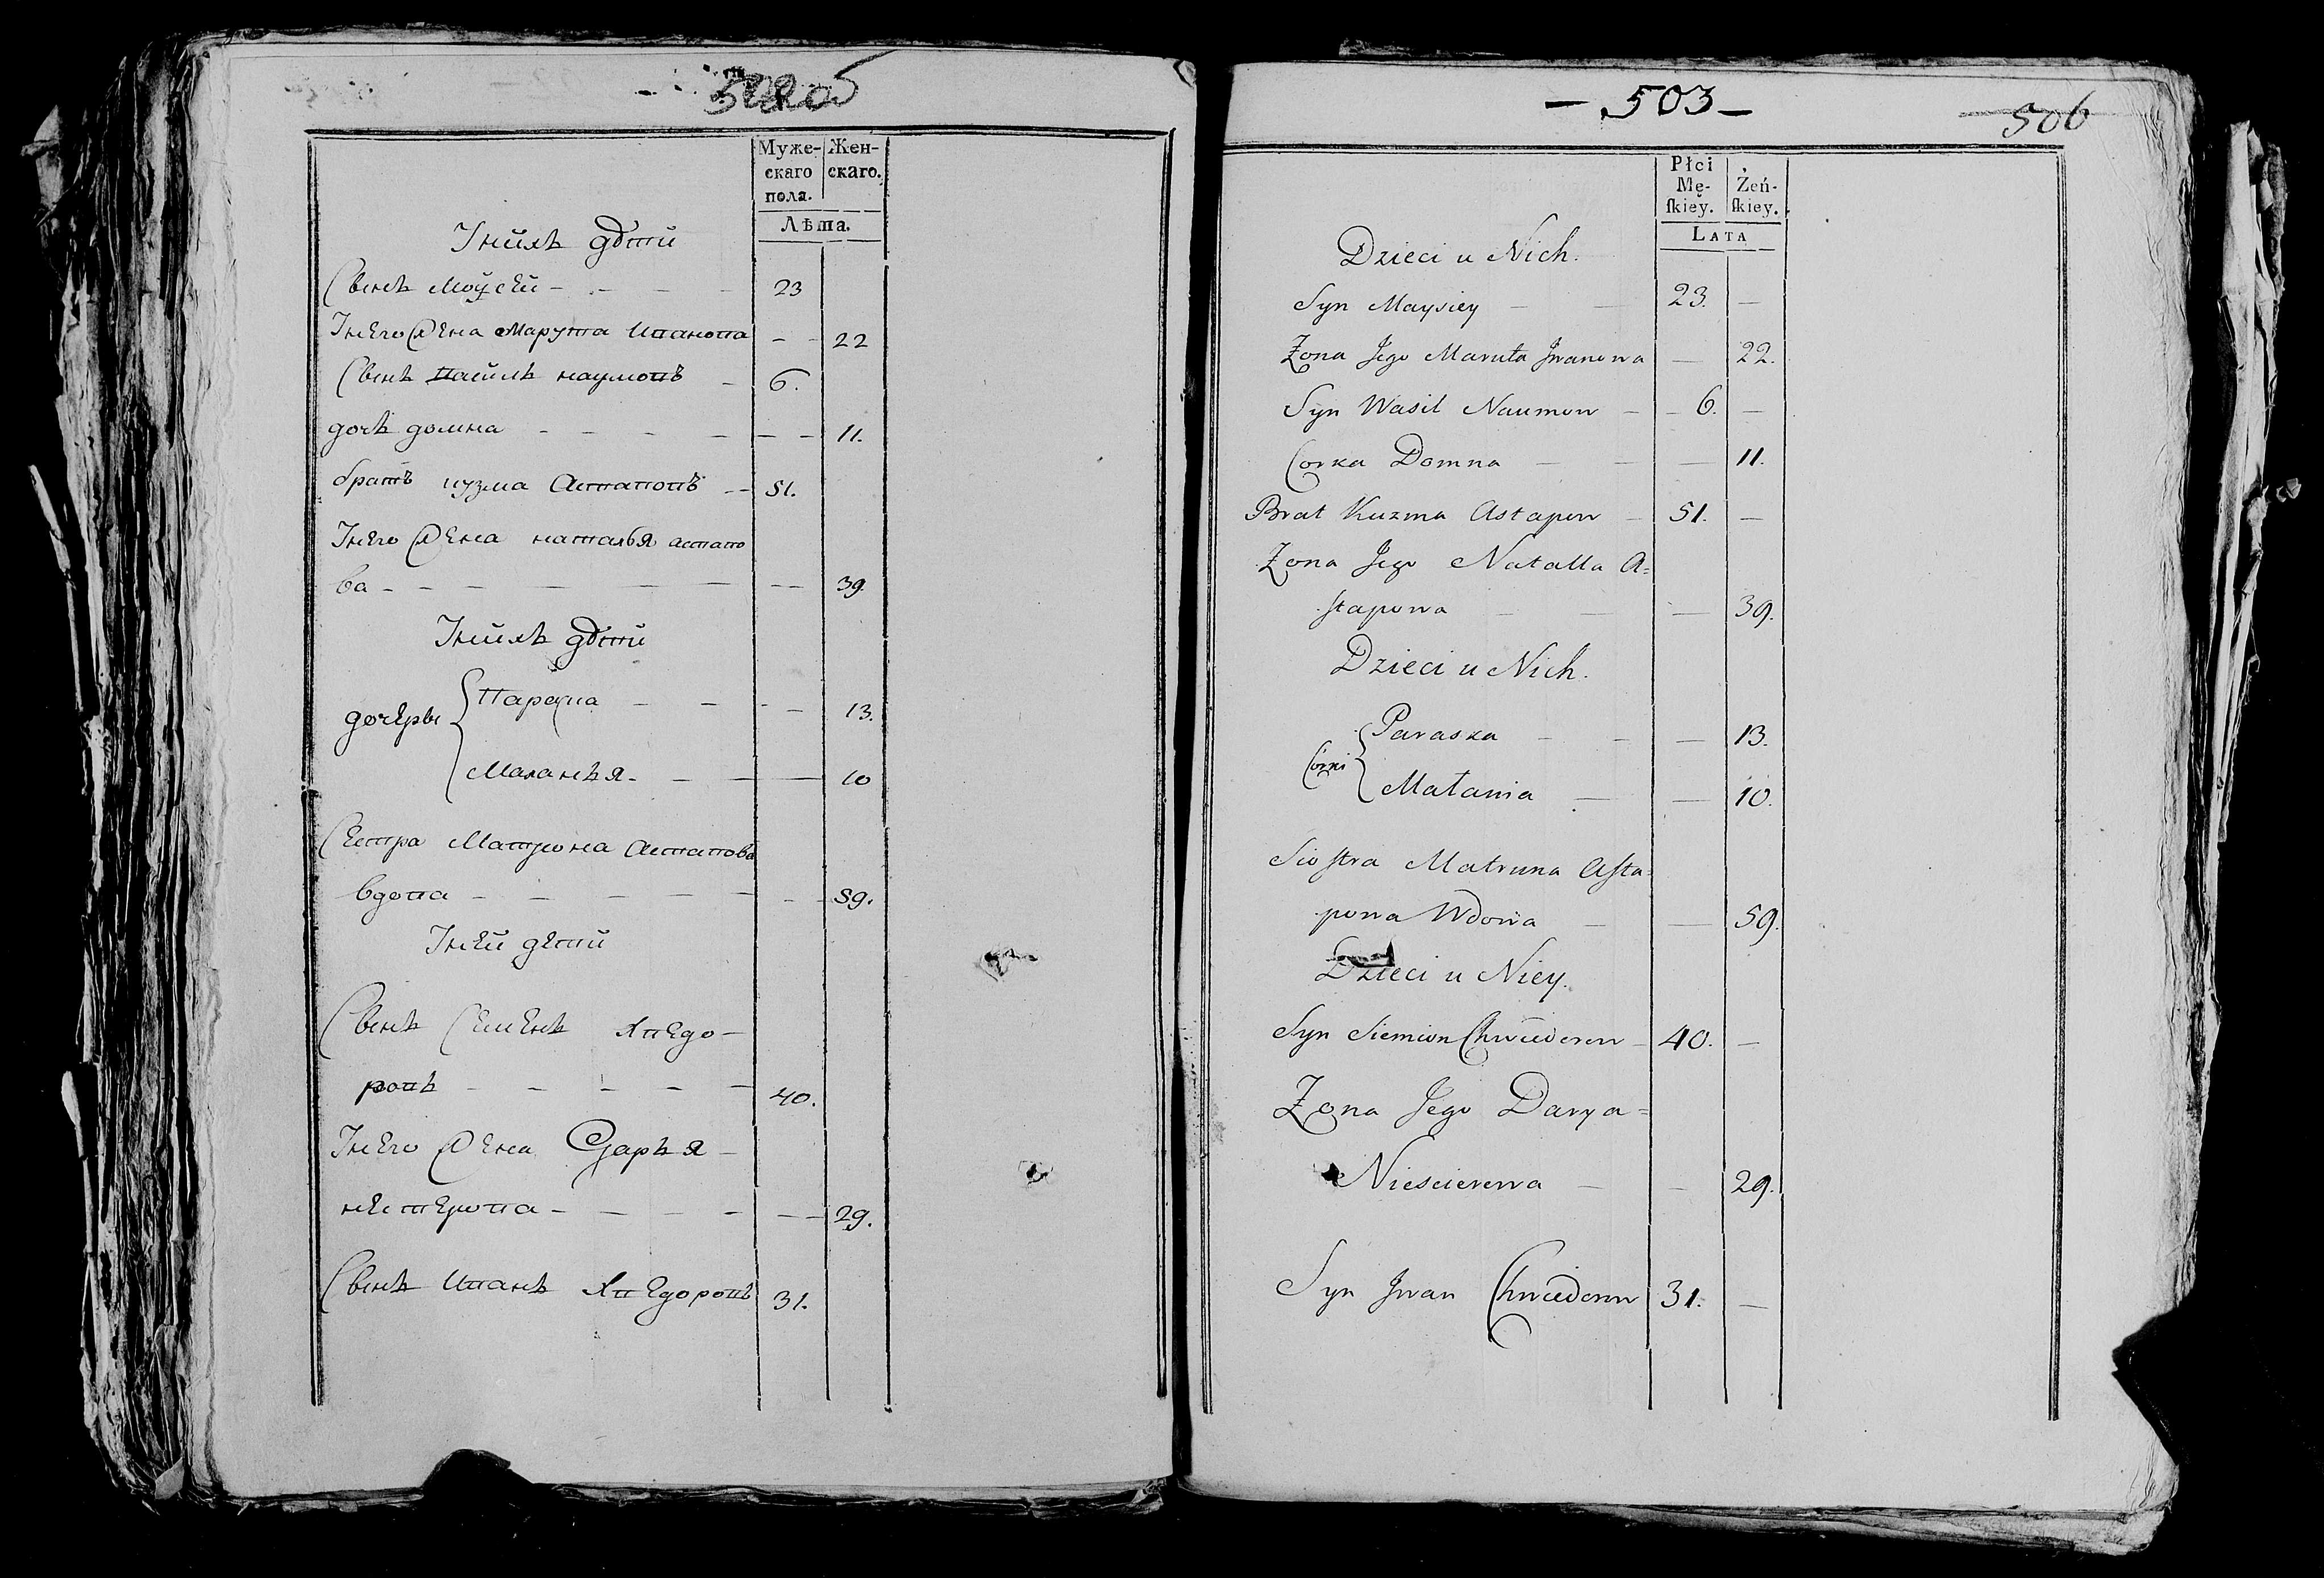 Муже-
скаго
пола.
Жен-
скаго.
Лѣта.
Унихъ дѣти
Сынъ Моисей - - - - 23
Унего жена Марута Иванова - - 22
Сынъ Василъ наумовъ - 6.
дочъ домна - - - - - - 11.
братъ кузма Астаповъ - - 51.
Унего жена наталья астапо
ва - - - - - - - 39.
Унихъ дѣти
дочеры
Параска - - - - 13.
Маланъя - - - - 10
Сестра Матрона Астапова
вдова - - - - - - - 59.
Уней дети
Сынъ Семенъ Хведо-
ровъ - - - - - 40.
Унего жена Даръя -
нестерова - - - - - - - 29.
Сынъ Иванъ Хведоровъ 31.
- 503 -
506
Płci
Mę-
ſkiey.
Żeń-
ſkiey.
LATA
Dzieci u Nich.
Syn Maysiey - - 23. -
Żona Jego Maruta Jwanowa - 22.
Syn Wasil Naumow - - 6. -
Corka Domna - - - 11.
Brat Kuzma Astapow - 51. -
Żona Jego Natalla A=
stapowa - - - 39.
Dzieci u Nich.
Córki
Paraska - - - 13.
Małania - - 10.
Siostra Matruna Asta-
powa Wdowa - - 59.
Dzieci u Niey.
Syn Siemion Chwiedorow - 40. -
Żona Jego Darya=
Niescierowa - - 29.
Syn Jwan Chwiedorow 31. -